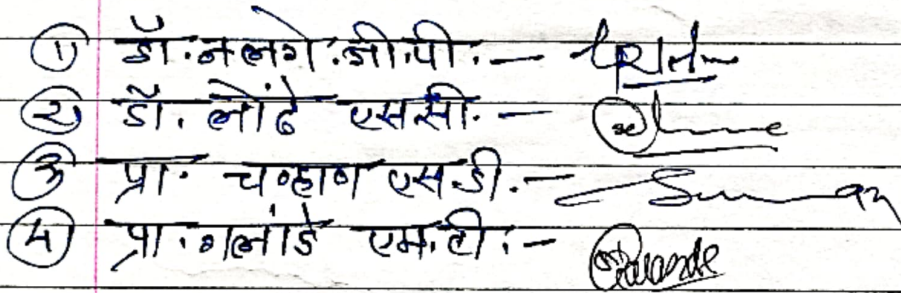 ① डॉ. नलगे. जी.पी. -
② डॉ. लोंढे एस.सी. -
③ प्रा. चव्हाण एस.डी. -
④ प्रा. गलांडे एम.टी. -